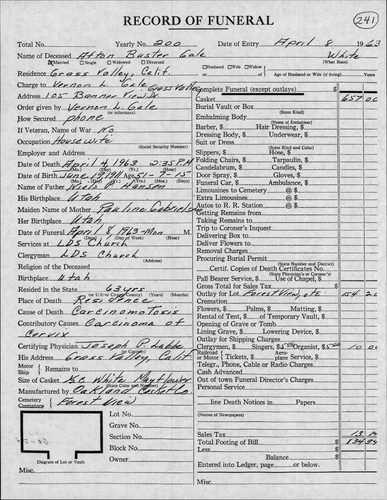 RECORD OF FUNERAL
241
Total No. Yearly No. 200 Date of Entry April 8 1963
Name of Deceased Buster Gale White
(What Race)
Married Single Widowed Divorced Husband Wife Widow Age of Husband or Wife (if living) Years
Residence Grass Valley, Calif.
Charge to Vernon L. Gale Grass Valley
Address 105 Banner View Dr
Order given by Vernon L. Gale
How Secured phone
If Veteran, Name of War No
Occupation Housewife
(Social Security Number)
Employer and Address
Date of Death April 4, 1963 2:35 P.M.
Date of Birth June 19 1911 51-9-15
Name of Father Niels P. Hansen
His Birthplace Utah
Maiden Name of Mother Pauline
Her Birthplace Utah
Date of Funeral April 8 1963 - Mon M.
Services at LDS Church
Clergyman LDS Church
Religion of the Deceased
Birthplace Utah
Resided in the State 63 yrs
Place of Death Residence
Cause of Death Carcinomatosis
Contributory Causes Carcinoma of
Cervix
Certifying Physician Joseph P. Labbe
His Address Grass Valley, Calif
Motor Ship Remains to
Size of Casket White Mayflower
Manufactured by Oakland Casket Co
Cemetery Crematory Forest View
Lot No.
Grave No.
Section No.
Block No.
Owner
Diagram of Lot or Vault
Misc.
Complete Funeral (except outlays) $
Casket 657 00
Burial Vault or Box
(State Kind)
Embalming Body
(Name of Embalmer)
Barber, $ Hair Dressing, $
Dressing Body, $ Underwear, $
Suit or Dress
(State Kind and Color)
Slippers, $ Hose, $
Folding Chairs, $ Tarpaulin, $
Candelabrum, $ Candles, $
Door Spray, $ Gloves, $
Funeral Car, $ Ambulance, $
Limousines to Cemetery @ $
Extra Limousines @ $
Autos to R. R. Station @ $
Getting Remains from
Taking Remains to
Trip to Coroner's Inquest
Delivering Box to
Deliver Flowers to
Removal Charges
Procuring Burial Permit
(State Number and District)
Certf. Copies of Death Certificates No.
(State Physician's or Coroner's)
Pall Bearer Service, $ Use of Chapel, $
Gross Total for Sales Tax $
Outlay for Lot Forest View, etc 154 20
Cremation
Flowers, $ Palms, $ Matting, $
Rental of Tent, $ of Temporary Vault, $
Opening of Grave or Tomb
Lining Grave, $ Lowering Device, $
Outlay for Shipping Charges
Clergymen, $ Singers, $ 5.00 Organist, $ 5.00 10 00
Railroad or Motor Tickets, $ Aeroplane Service, $
Telegr., Phone, Cable or Radio Charges
Cash Advanced
Out of town Funeral Director's Charges
Personal Service
Line Death Notices in Papers
(Names of Newspapers)
Sales Tax 13 14
Total Footing of Bill $ 834 34
Less
Balance $
Entered into Ledger, page or below.
Misc.